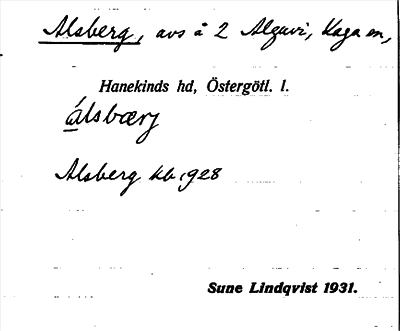 Alsberg, avs å 2 Alguvi, Kaga sn,
Hanekinds hd, Östergötl. l.
álsbærj
Alsberg kb 1928
Sune Lindqvist 1931.